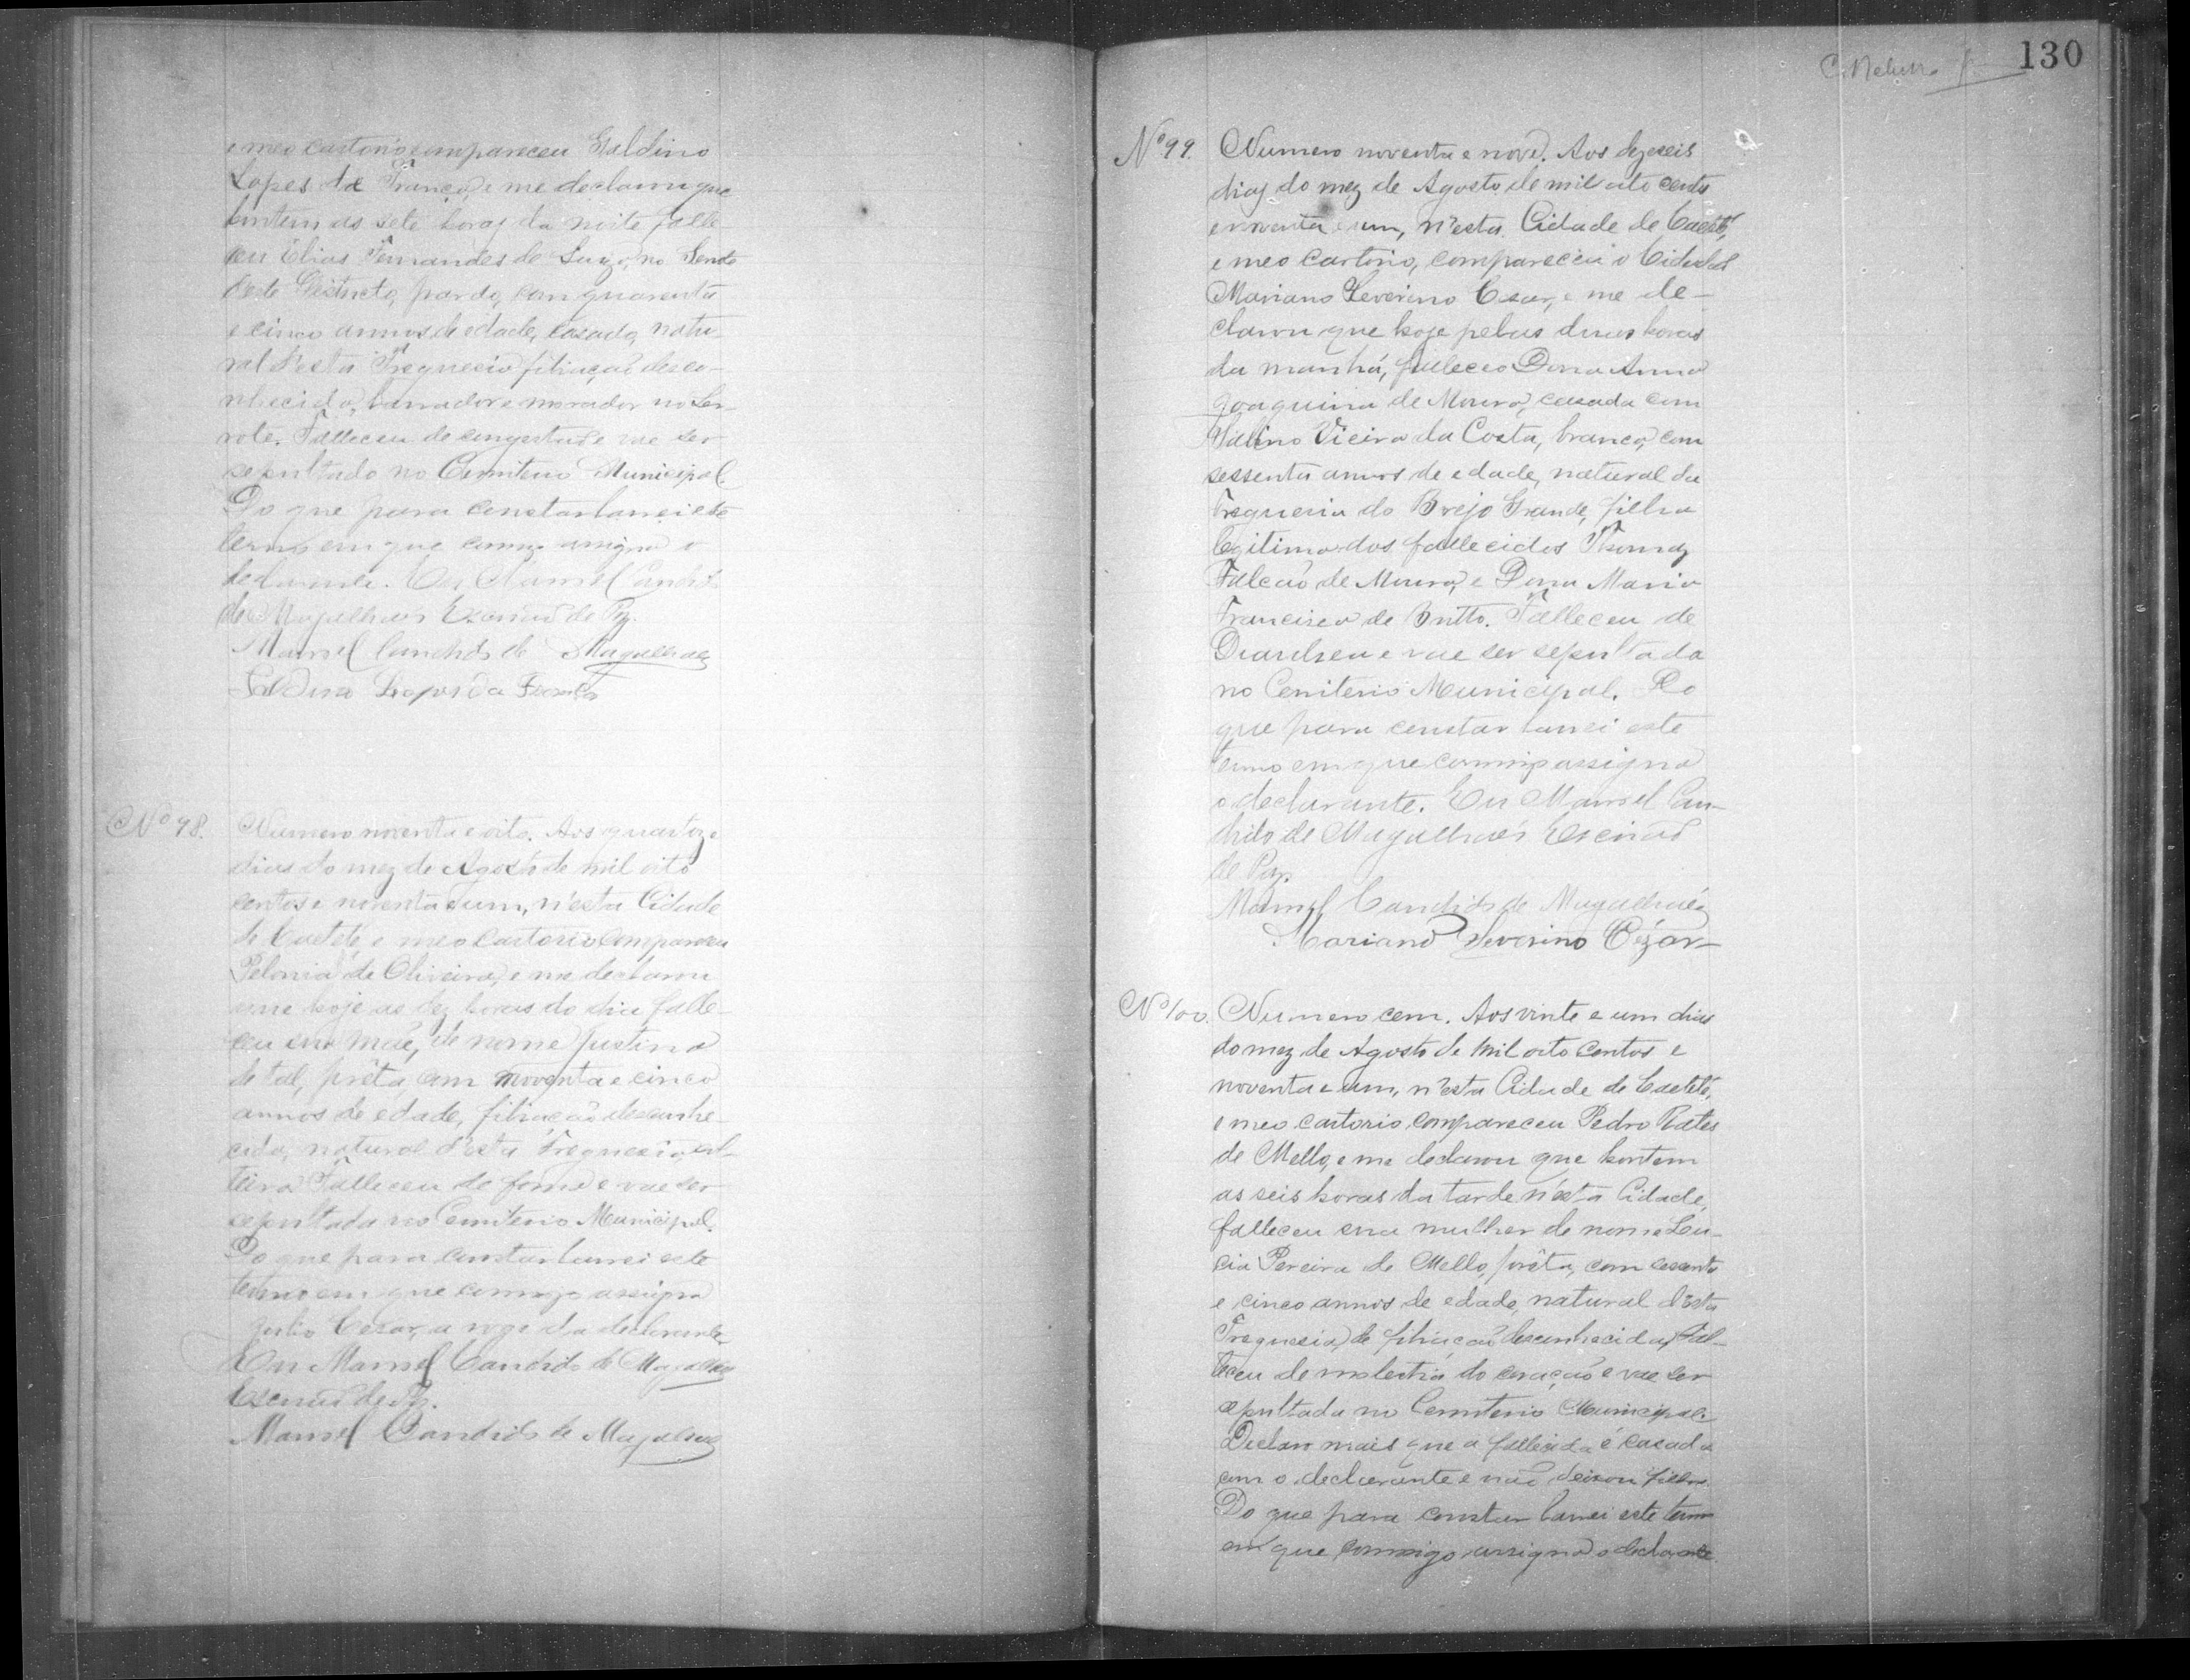 e meo cartorio compareceu Galdino
Lopes da França, e me declarou que
hontem as sete horas da noite falle-
ceu Elias Fernandes de Souza, no
deste Districto, pardo, com quarenta
e cinco annos de edade, casado, natu-
ral d'esta Freguesia, filiação desco-
nhecida, lavrador e morador no Ser-
rote. Falleceu de congestão e vae ser
sepultado no Cemiterio Municipal.
Do que para constar lavrei este
termo em que comigo assigna o
declarante. Eu Manoel Candido
de Magalhães Escrivão de Paz.
Manoel Candido de Magalhães
Galdino Lopes da França
Nº 98. Numero noventa e oito. Aos quatorze
dias do mez de Agosto de mil oito
centos e noventa e um, n'esta Cidade
de Caeteté, e meo cartorio compareceu
Pelonia de Oliveira, e me declarou
que hoje as dez horas do dia falle-
ceu sua mãe, de nome Justina
de tal, prêta, com noventa e cinco
annos de edade, filiação desconhe-
cida, natural d'esta Freguesia, sol-
teira. Falleceu de fome e vae ser
sepultada no Cemiterio Municipal.
Do que para constar lavrei este
termo em que comigo assigna
Julio Cesar, a rogo da declarante.
Eu Manoel Candido de Magalhães
Escrivão de Paz.
Manoel Candido de Magalhães
130
Nº 99. Numero noventa e nove. Aos dezeseis
dias do mez de Agosto de mil oito centos
e noventa e um, n'esta Cidade de Caeteté,
e meo cartorio, compareceu o Cidadão
Mariano Severino Cesar, e me de-
clarou que hoje pelas duas horas
da manhã, falleceo Dona Anna
Joaquina de Moura, casada com
Galino Vieira da Costa, branca, com
sessenta annos de edade, natural da
Freguesia do Brejo Grande, filha
legitima dos fallecidos Thomaz
Falcão de Moura, e Dona Maria
Francisca de Britto. Falleceu de
Diarrhea e vae ser sepultada
no Cemiterio Municipal. Do
que para constar lavrei este
termo em que comigo assigna
o declarante. Eu Manoel Can-
dido de Magalhães Escrivão
de Paz.
Manoel Candido de Magalhães
Mariano Severino Cézar
Nº 100. Numero cem. Aos vinte e um dias
do mez de Agosto de mil oito centos e
noventa e um, n'esta Cidade de Caeteté,
e meo cartorio compareceu Pedro Prates
de Mello, e me declarou que hontem
as seis horas da tarde n'esta Cidade,
falleceu sua mulher de nome Leu-
cia Pereira de Mello, prêta, com sessenta
e cinco annos de edade, natural d'esta
Freguesia, de filiação desconhecida, Fal-
leceu de molestia do coração e vae ser
sepultada no Cemiterio Municipal.
Declaro mais que a fallecida é casada
com o declarante e não deixou filhos.
Do que para constar lavrei este termo
em que commigo assigna o declarante.